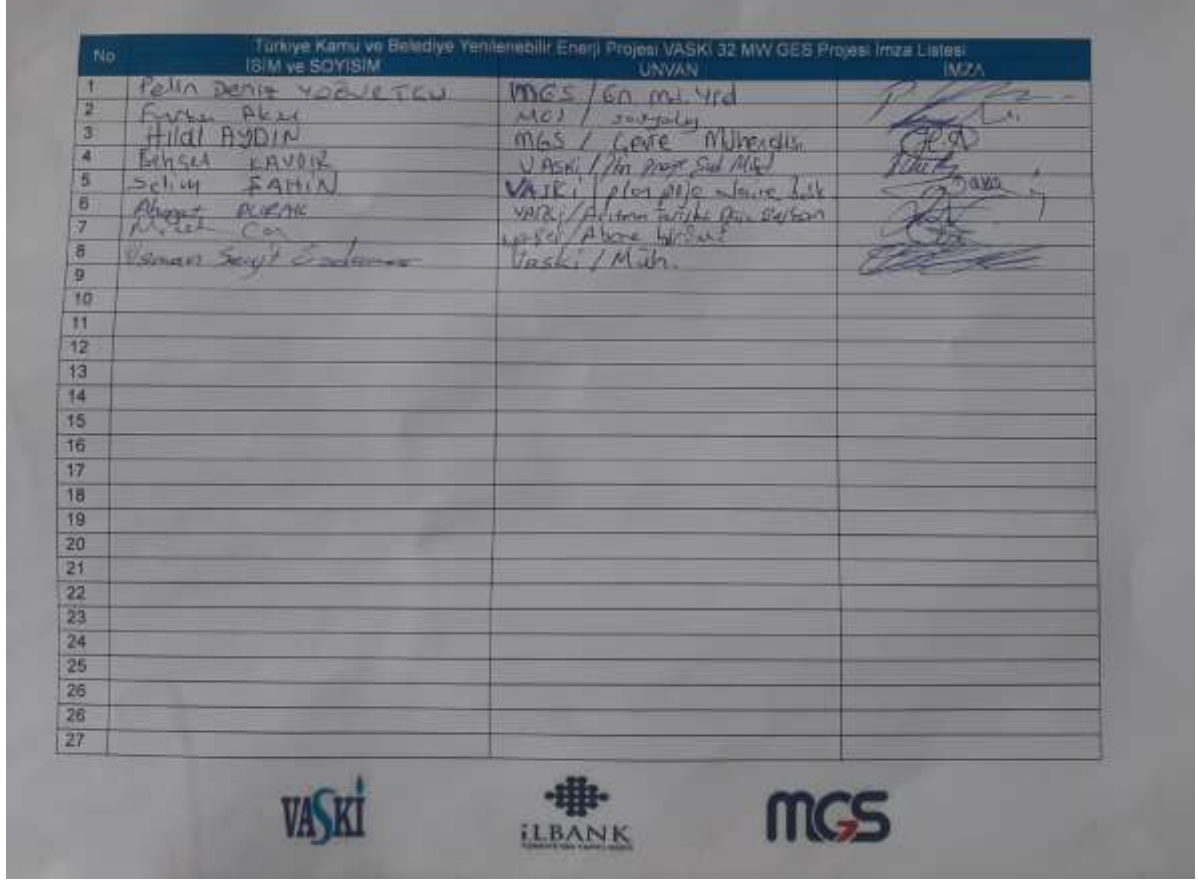 Türkiye Kamu ve Belediye Yenilenebilir Enerji Projesi VASKİ 32 MW GES Projesi İmza Listesi
No İSİM ve SOYİSİM UNVAN İMZA
1 Pelin Deniz YOĞURTCU MGS / Gn Md. Yrd
2 MGS / sosyolog
3 Hilal AYDIN MGS / Çevre Mühendisi
4 Behçet KAVDIR VASKİ /
5 Selim ŞAHİN VASKİ / plan proje daire
6 VASKİ / Arıtma
7 Can / Abone birimi
8 Osman Seyit Vaski / Müh.
9
10
11
12
13
14
15
16
17
18
19
20
21
22
23
24
25
26
26
27
VASKİ İLBANK MGS